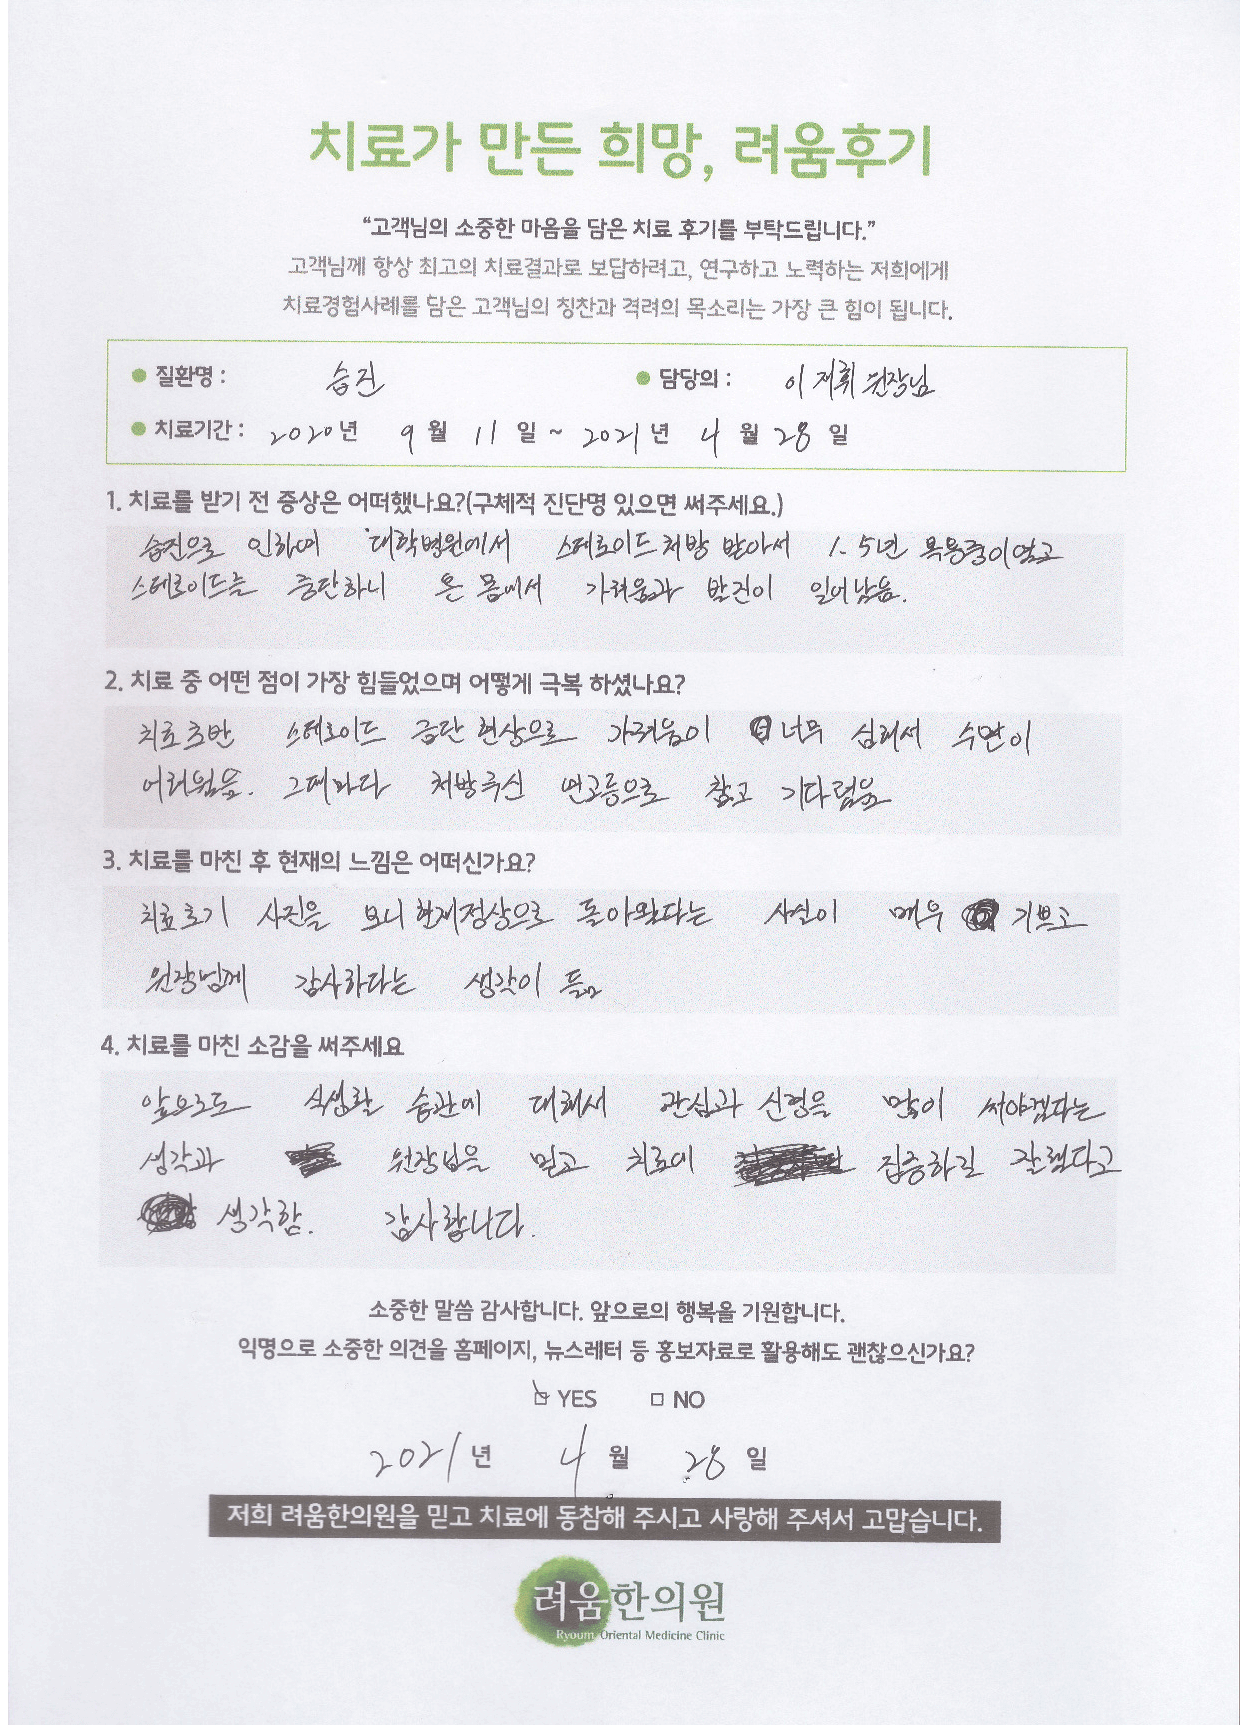 치료가 만든 희망, 려움후기
“고객님의 소중한 마음을 담은 치료 후기를 부탁드립니다.”
고객님께 항상 최고의 치료결과로 보답하려고, 연구하고 노력하는 저희에게
치료경험사례를 담은 고객님의 칭찬과 격려의 목소리는 가장 큰 힘이 됩니다.
질환명 : 습진 담당의 : 이재휘 원장님
치료기간 : 2020년 9월 11일 ~ 2021년 4월 28일
1. 치료를 받기 전 증상은 어떠했나요?(구체적 진단명 있으면 써주세요.)
습진으로 인하여 대학병원에서 스테로이드처방 받아서 1.5년 복용중이었고
스테로이드를 중단하니 온 몸에서 가려움과 발진이 일어났음.
2. 치료 중 어떤 점이 가장 힘들었으며 어떻게 극복 하셨나요?
치료초반 스테로이드 금단현상으로 가려움이 너무 심해서 수면이
어려웠음. 그때마다 처방주신 연고등으로 참고 기다렸음
3. 치료를 마친 후 현재의 느낌은 어떠신가요?
치료초기 사진을 보니 현재정상으로 돌아왔다는 사실이 매우 기쁘고
원장님께 감사하다는 생각이 듬
4. 치료를 마친 소감을 써주세요
앞으로도 식생활 습관에 대해서 관심과 신경을 많이 써야겠다는
생각과 원장님을 믿고 치료에 집중하길 잘했다고
생각함. 감사합니다.
소중한 말씀 감사합니다. 앞으로의 행복을 기원합니다.
익명으로 소중한 의견을 홈페이지, 뉴스레터 등 홍보자료로 활용해도 괜찮으신가요?
YES NO
2021년 4월 28일
저희 려움한의원을 믿고 치료에 동참해 주시고 사랑해 주셔서 고맙습니다.
려움한의원
Ryoum Oriental Medicine Clinic